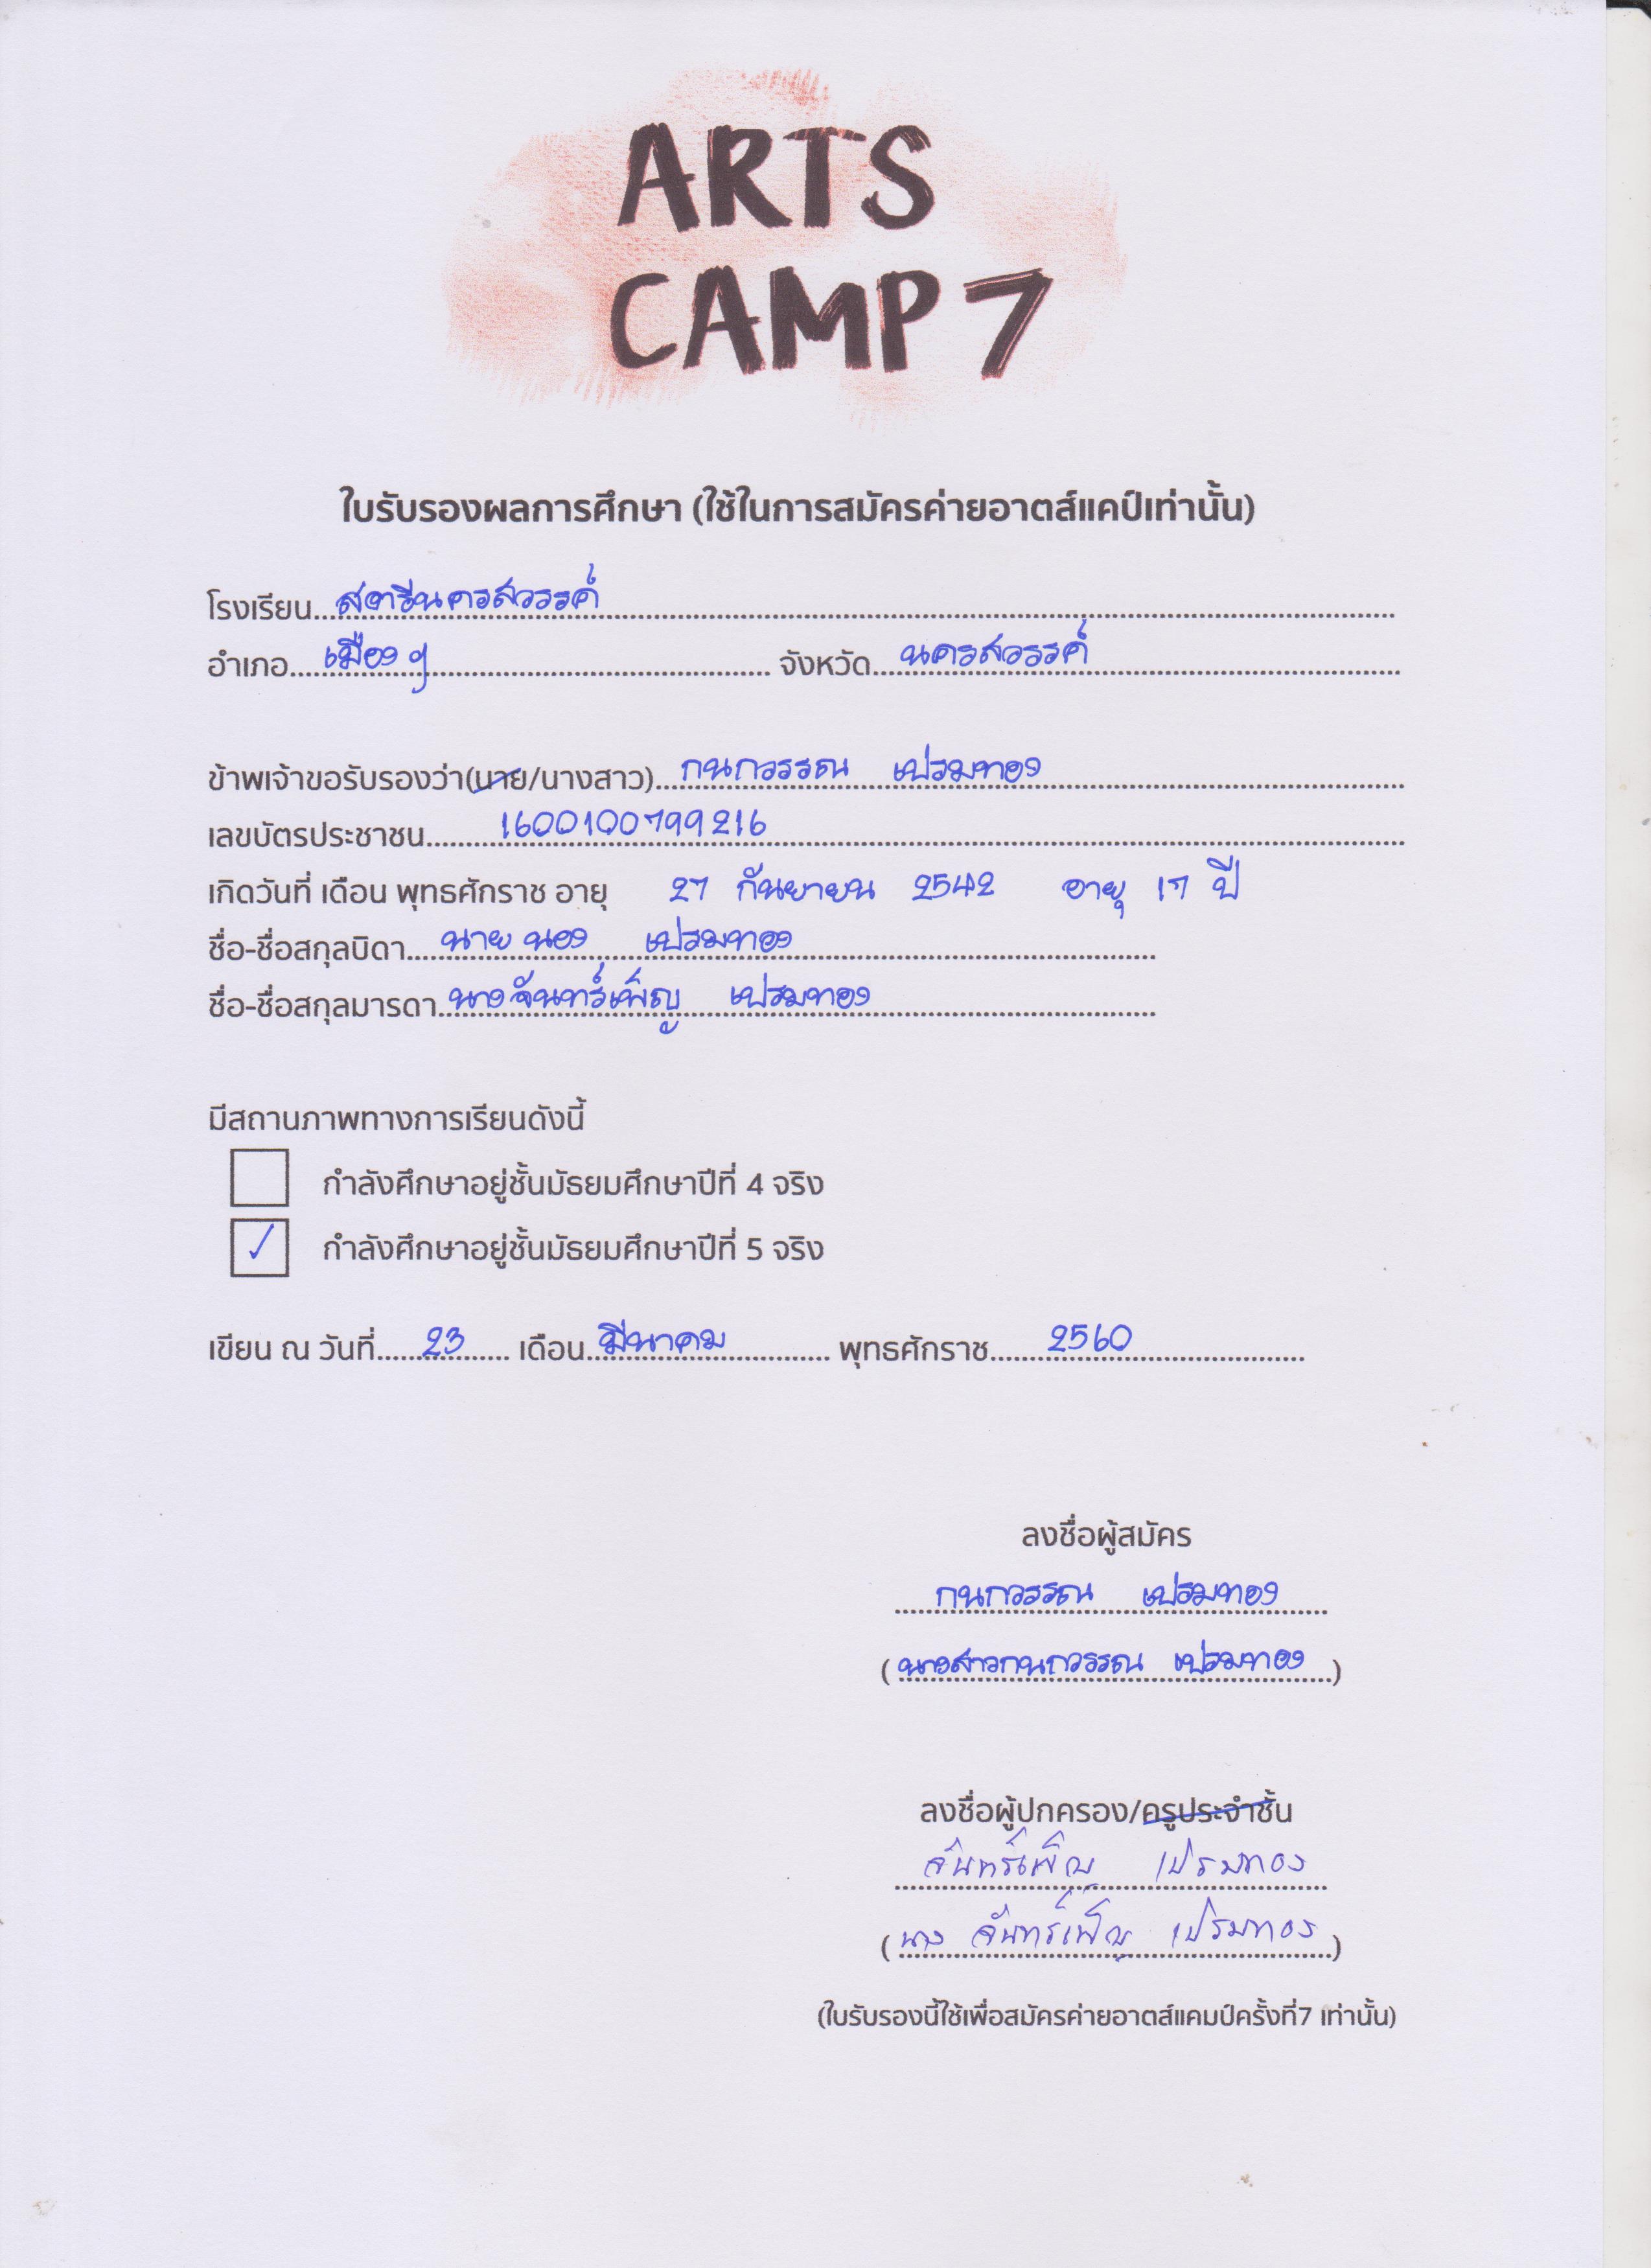 ARTS
CAMP 7
ใบรับรองผลการศึกษา (ใช้ในการสมัครค่ายอาตส์แคป์เท่านั้น)
โรงเรียน...สตรีนครสวรรค์
อำเภอ...เมืองฯ... จังหวัด...นครสวรรค์
ข้าพเจ้าขอรับรองว่า(นาย/นางสาว)...กนกวรรณ เปรมทอง
เลขบัตรประชาชน...1600100799216
เกิดวันที่ เดือน พุทธศักราช อายุ 27 กันยายน 2542 อายุ 17 ปี
ชื่อ-ชื่อสกุลบิดา...นาย นอง เปรมทอง
ชื่อ-ชื่อสกุลมารดา...นางจันทร์เพ็ญ เปรมทอง
มีสถานภาพทางการเรียนดังนี้
กำลังศึกษาอยู่ชั้นมัธยมศึกษาปีที่ 4 จริง
✓ กำลังศึกษาอยู่ชั้นมัธยมศึกษาปีที่ 5 จริง
เขียน ณ วันที่...23... เดือน...มีนาคม... พุทธศักราช...2560
ลงชื่อผู้สมัคร
กนกวรรณ เปรมทอง
(นางสาวกนกวรรณ เปรมทอง)
ลงชื่อผู้ปกครอง/ครูประจำชั้น
จันทร์เพ็ญ เปรมทอง
(นาง จันทร์เพ็ญ เปรมทอง)
(ใบรับรองนี้ใช้เพื่อสมัครค่ายอาตส์แคมป์ครั้งที่7 เท่านั้น)